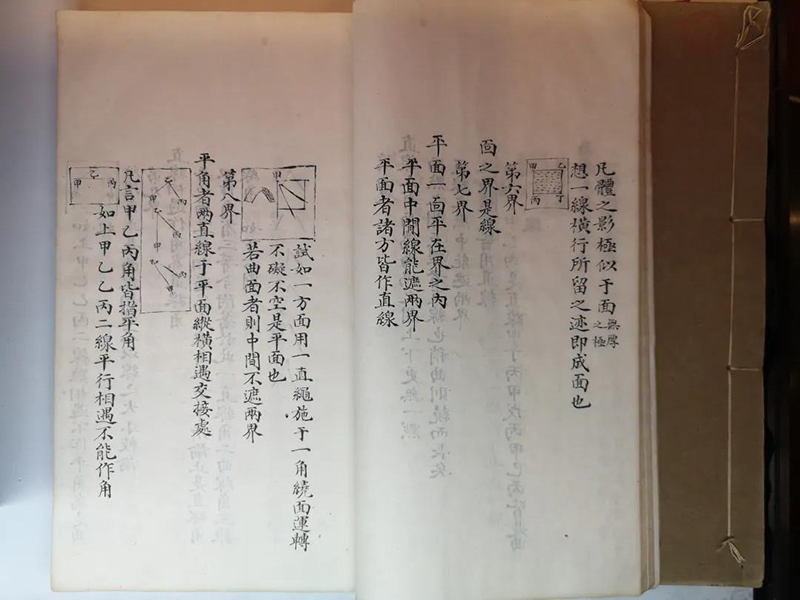 凡體之影極似于面無厚之極
想一線橫行所留之迹即成面也
甲乙丙丁
第六界
面之界是線
第七界
平面一面平在界之內
平面中間線能遮兩界
平面者諸方皆作直線
甲
試如一方面用一直繩施于一角繞面運轉
不礙不空是平面也
若曲面者則中間不遮兩界
第八界
平角者兩直線于平面縱橫相遇交接處
凡言甲乙丙角皆指平角
甲乙丙
如上甲乙乙丙二線平行相遇不能作角